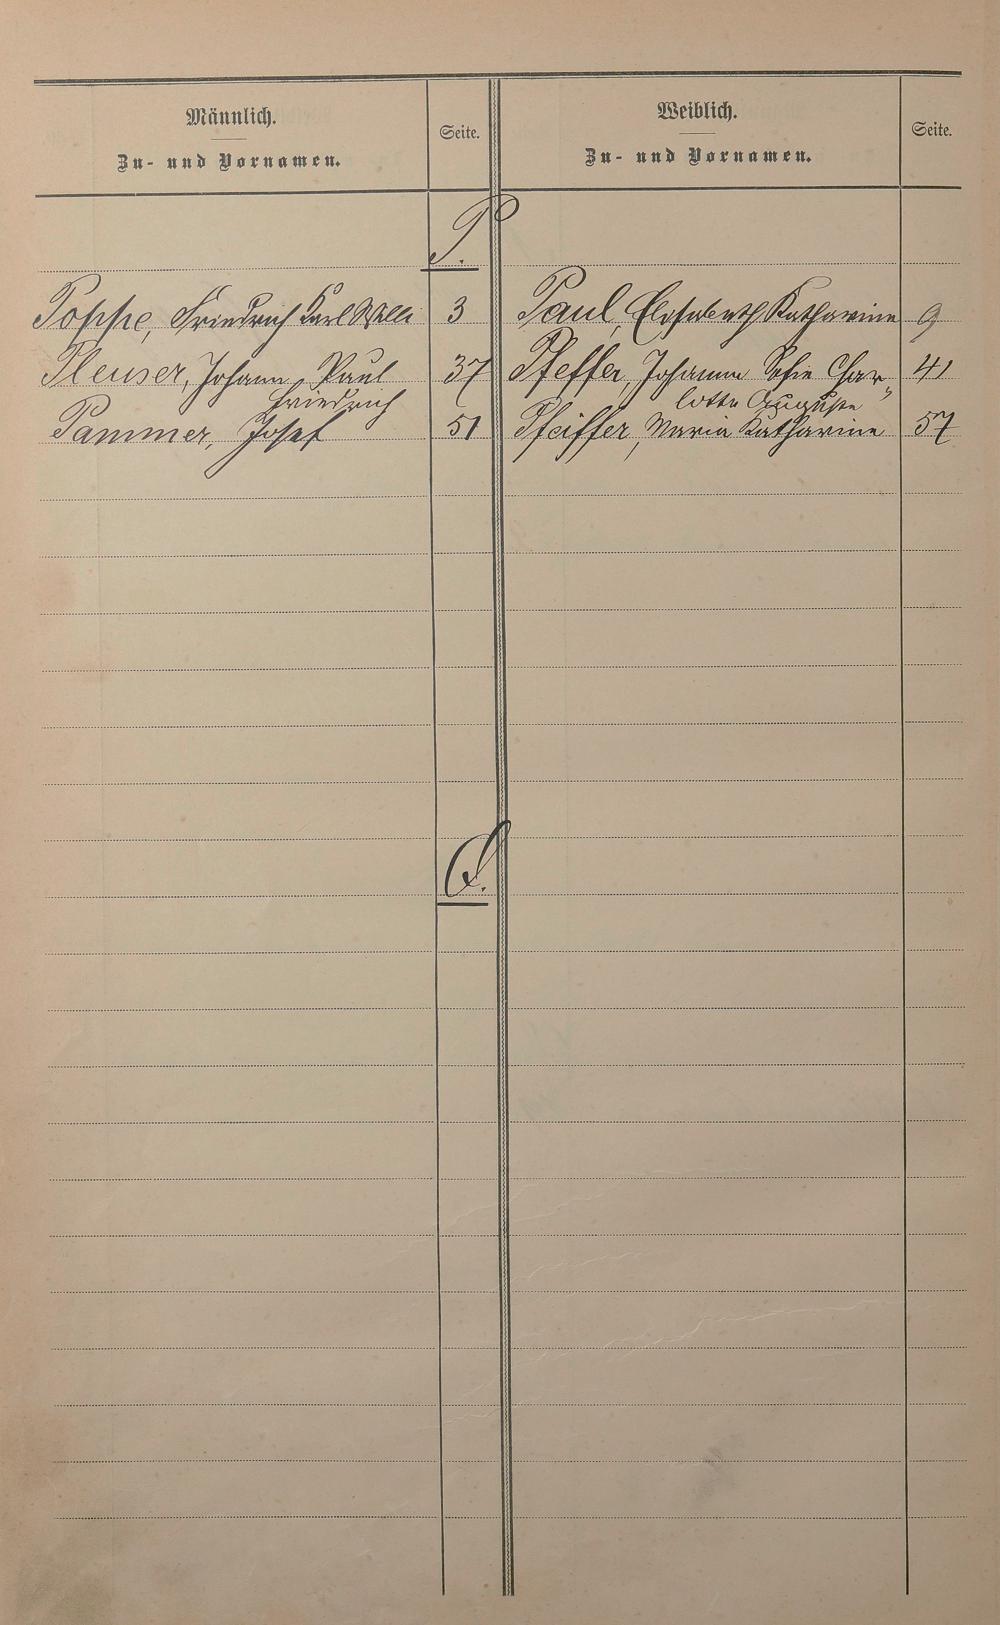 Männlich.
Zu- und Vornamen.
Seite.
Weiblich.
Zu- und Vornamen.
Seite.
P.
Poppe, Friedrich Karl Willi 3
Pleuser, Johann Paul 37
Friedrich
Pammer, Josef 51
Paul, Elisabeth Katharine 9
Pfeffer, Johanna Sofie Char„ 41
lotte Auguste
Pfeiffer, Maria Katharine 57
Q.